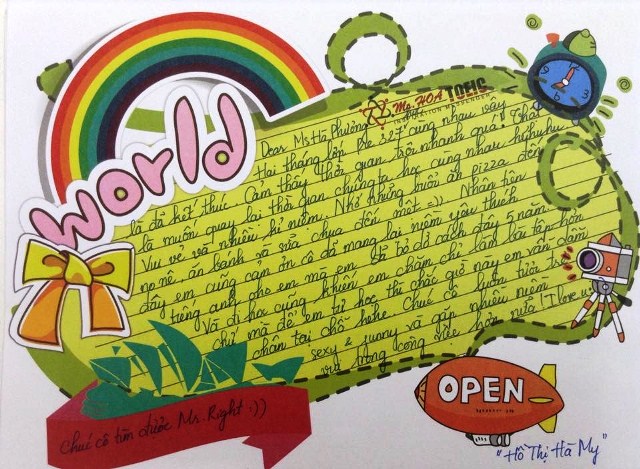 world
Ms HOA TOEIC
Dear Ms Hà Phương
Hai tháng lớp Pre 327 cùng nhau vậy
là đã kết thúc. Cảm thấy thời gian trôi nhanh quá! Thật
là muốn quay lại thời gian chúng ta học cùng nhau huhuhu
Vui vẻ và nhiều kỉ niệm. Nhớ những buổi ăn pizza đến
no nê, ăn bánh và sữa chua đến mệt =)) Nhân tiện
đây em cũng cảm ơn cô đã mang lại niềm yêu thích
tiếng anh cho em mà em đã bỏ dở cách đây 5 năm.
Và đi học cũng khiến em chăm chỉ làm bài tập hơn
chứ mà để em tự học thì chắc giờ này em vẫn dẫm
chân tại chỗ hehe. Chúc cô luôn tươi trẻ
sexy & funny và gặp nhiều niềm
vui trong công việc hơn nữa! I love u!
OPEN
Chúc cô tìm được Mr. Right :))
"Hồ Thị Hà My"